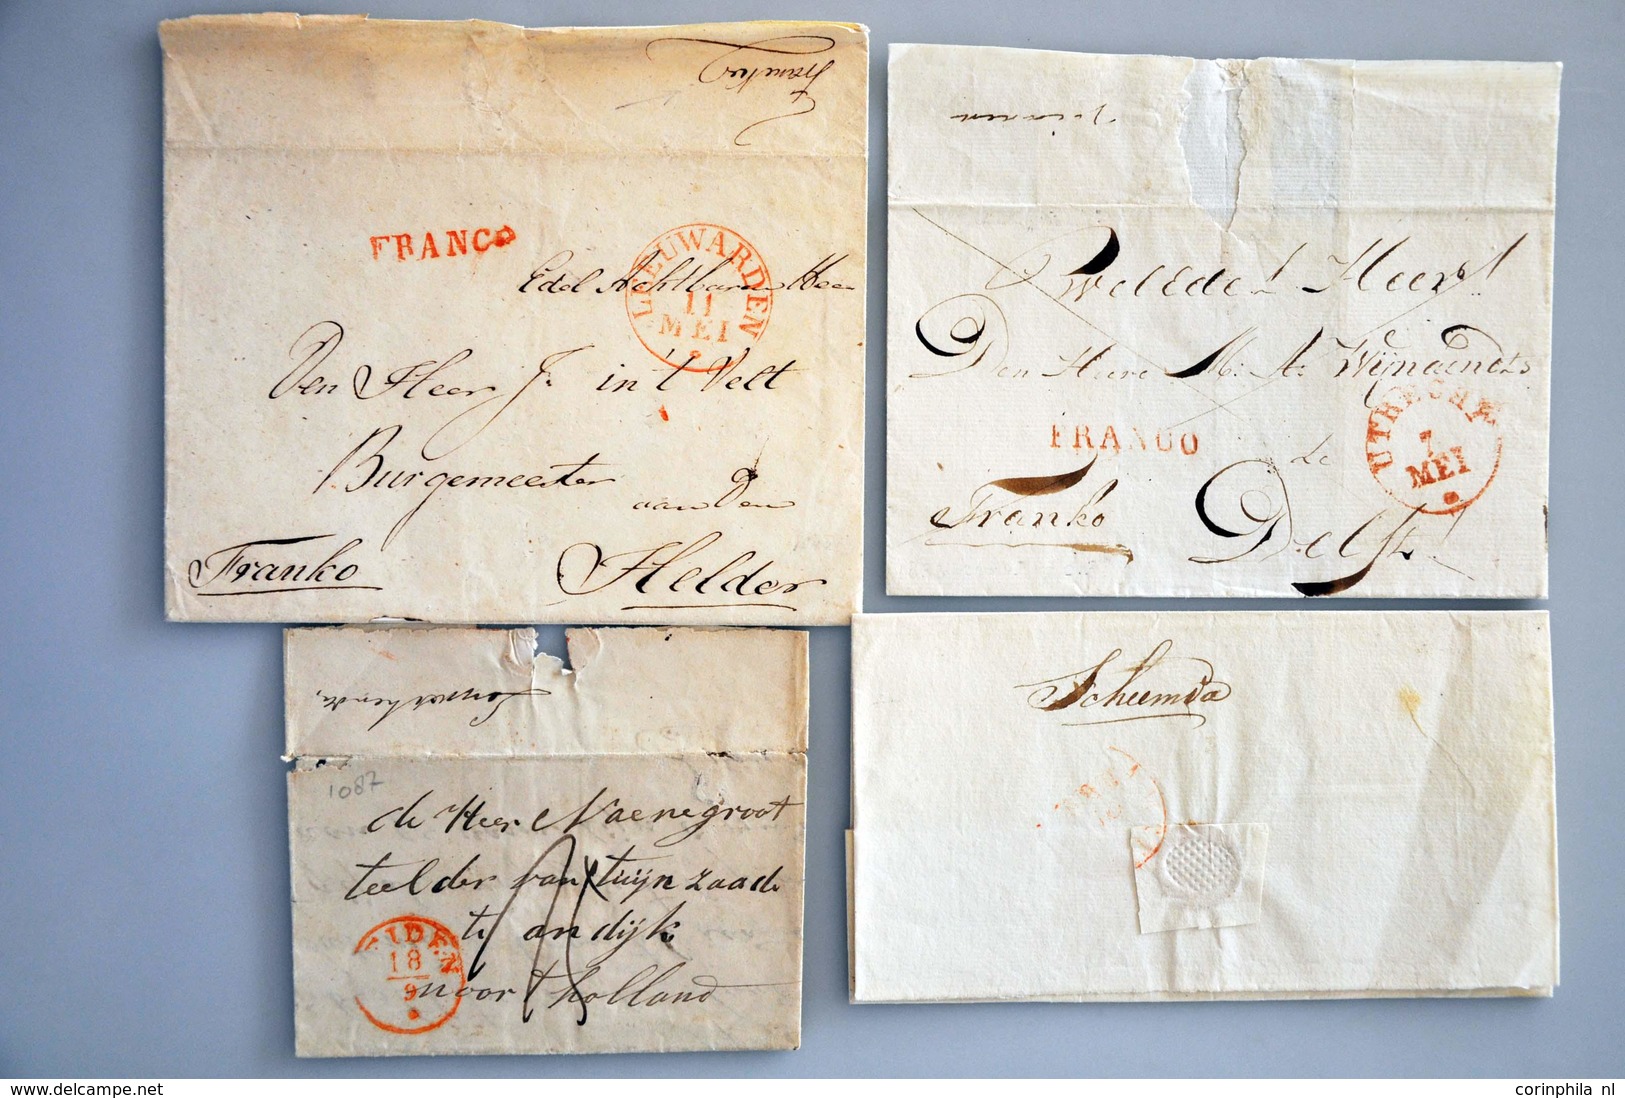 Franeker
FRANCO
LEEUWARDEN
11
MEI
Edel Achtbaren Heer
Den Heer J. in 't Velt
Burgemeester
aan Den
Franko
Helder
Vianen
Weledel Heer!
Den Heere M. A. Wijnaendts
UTRECHT
7
MEI
FRANCO
te
Franko
Delft!
1087
de Heer N aenegroot
teelder van tuijn zaade
te an dijk
noort holland
EIDEN
18
9
Scheemda
corinphila nl